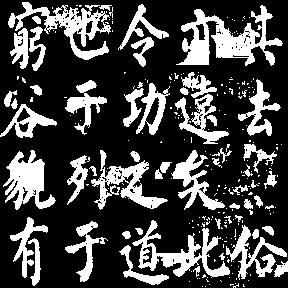 其去俗
亦遠矣此
令功之道
也于列于
窮容貌有